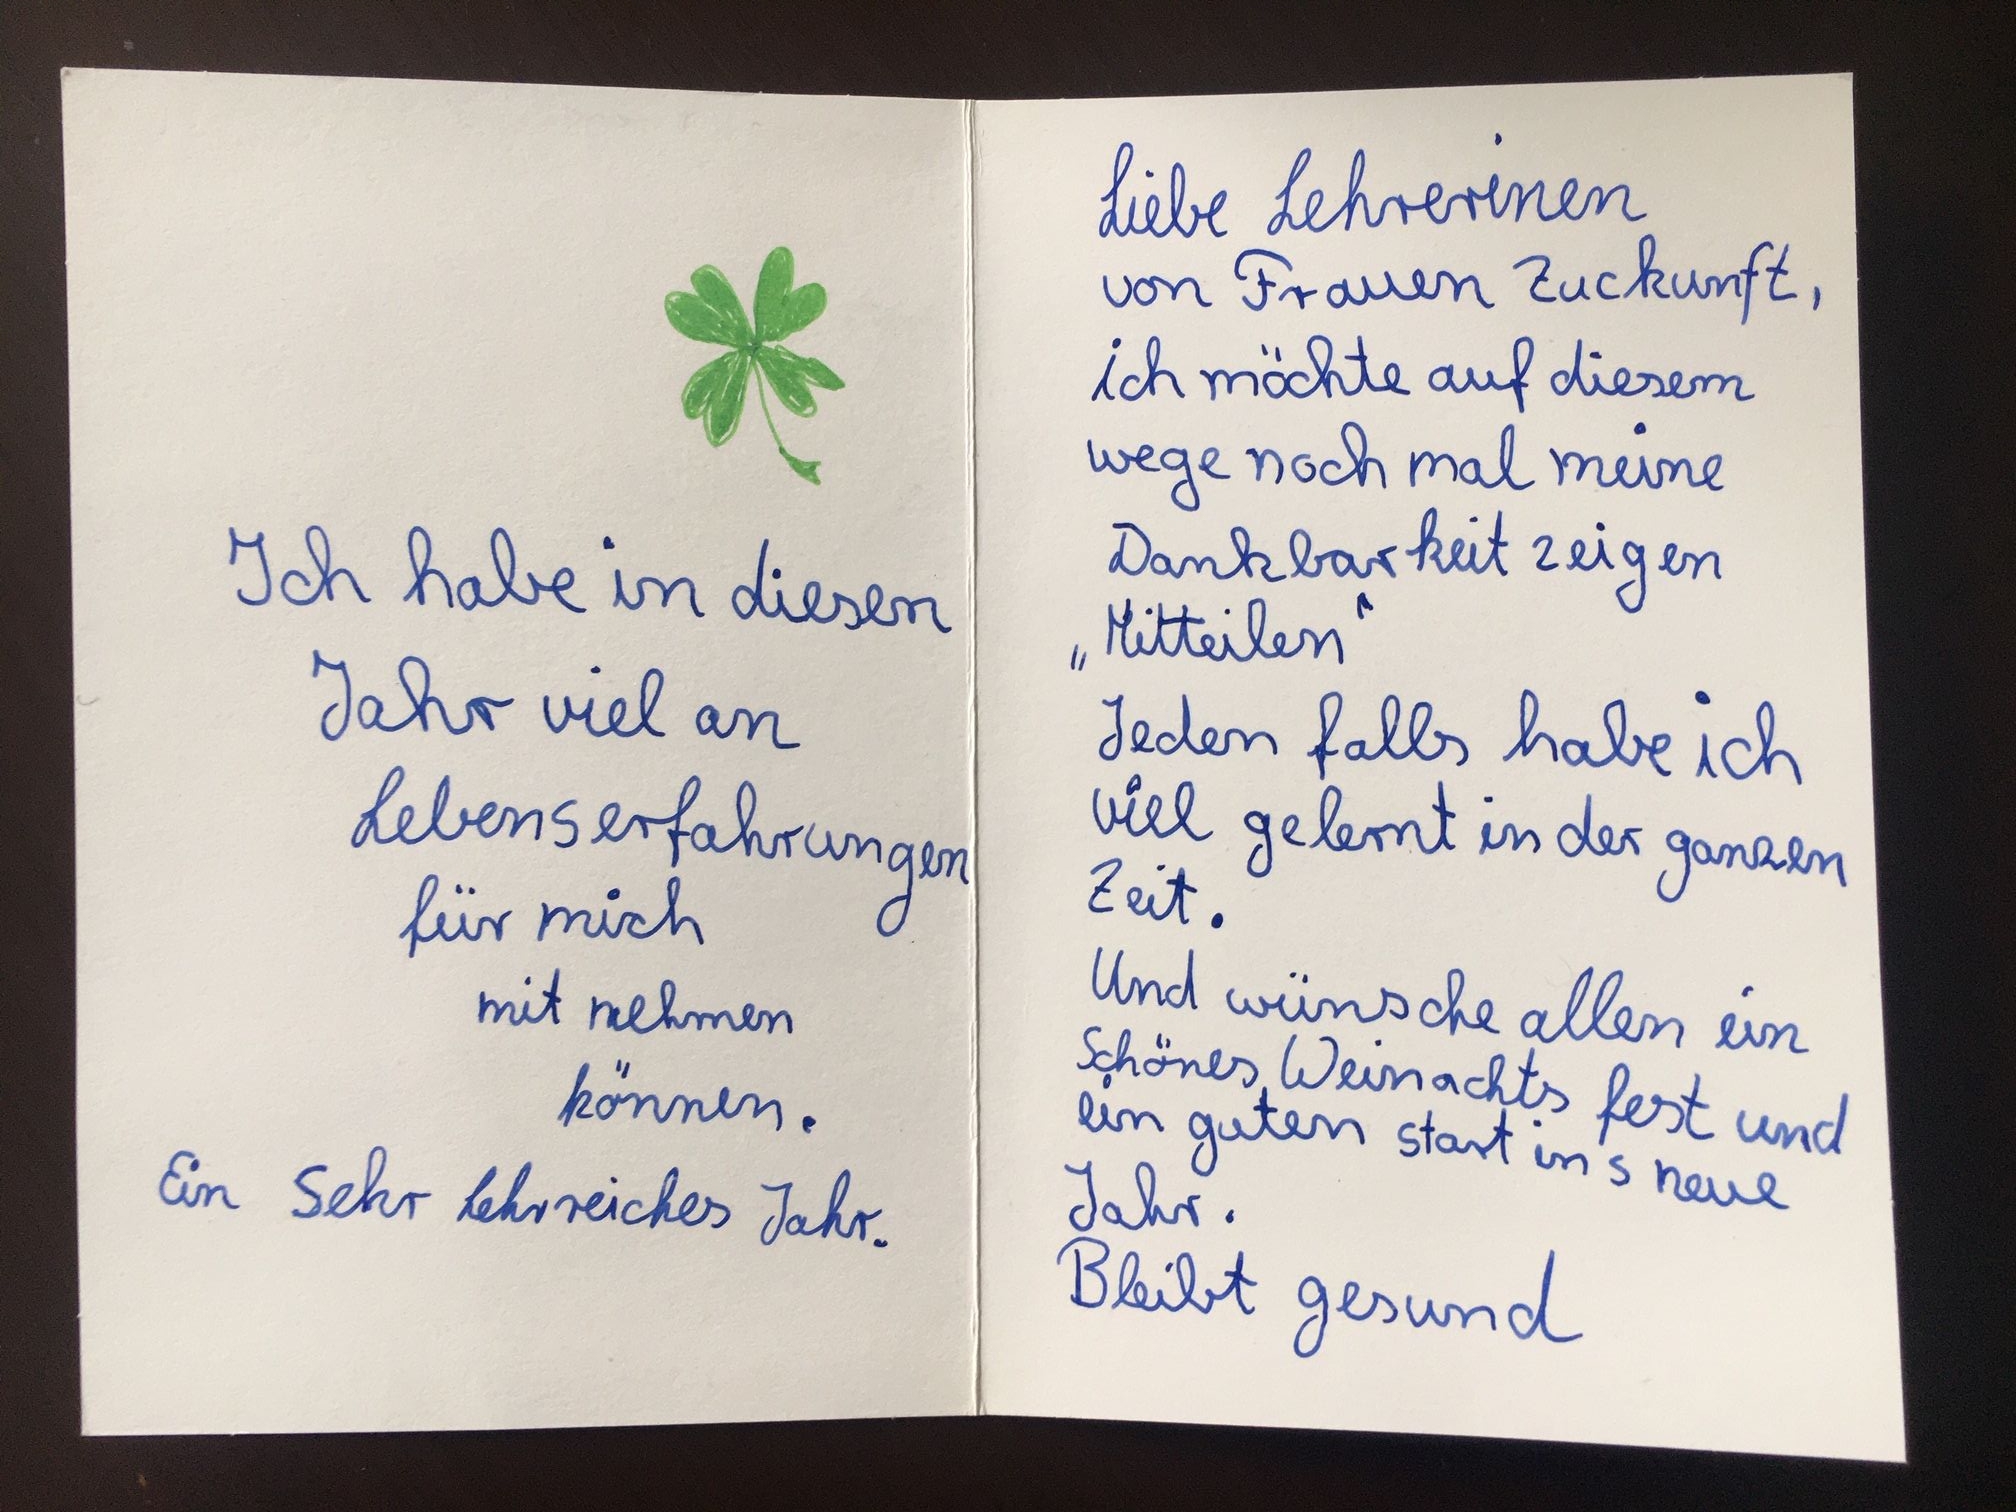 Ich habe in diesen
Jahr viel an
Lebenserfahrungen
für mich
mit nehmen
können.
Ein Sehr lehrreiches Jahr.
Liebe Lehrerinen
von Frauen Zuckunft,
ich möchte auf diesem
wege noch mal meine
Dankbarkeit zeigen
„Mitteilen“
Jeden falls habe ich
viel gelernt in der ganzen
Zeit.
Und wünsche allen ein
Schönes Weinachts fest und
ein guten start in s neue
Jahr.
Bleibt gesund